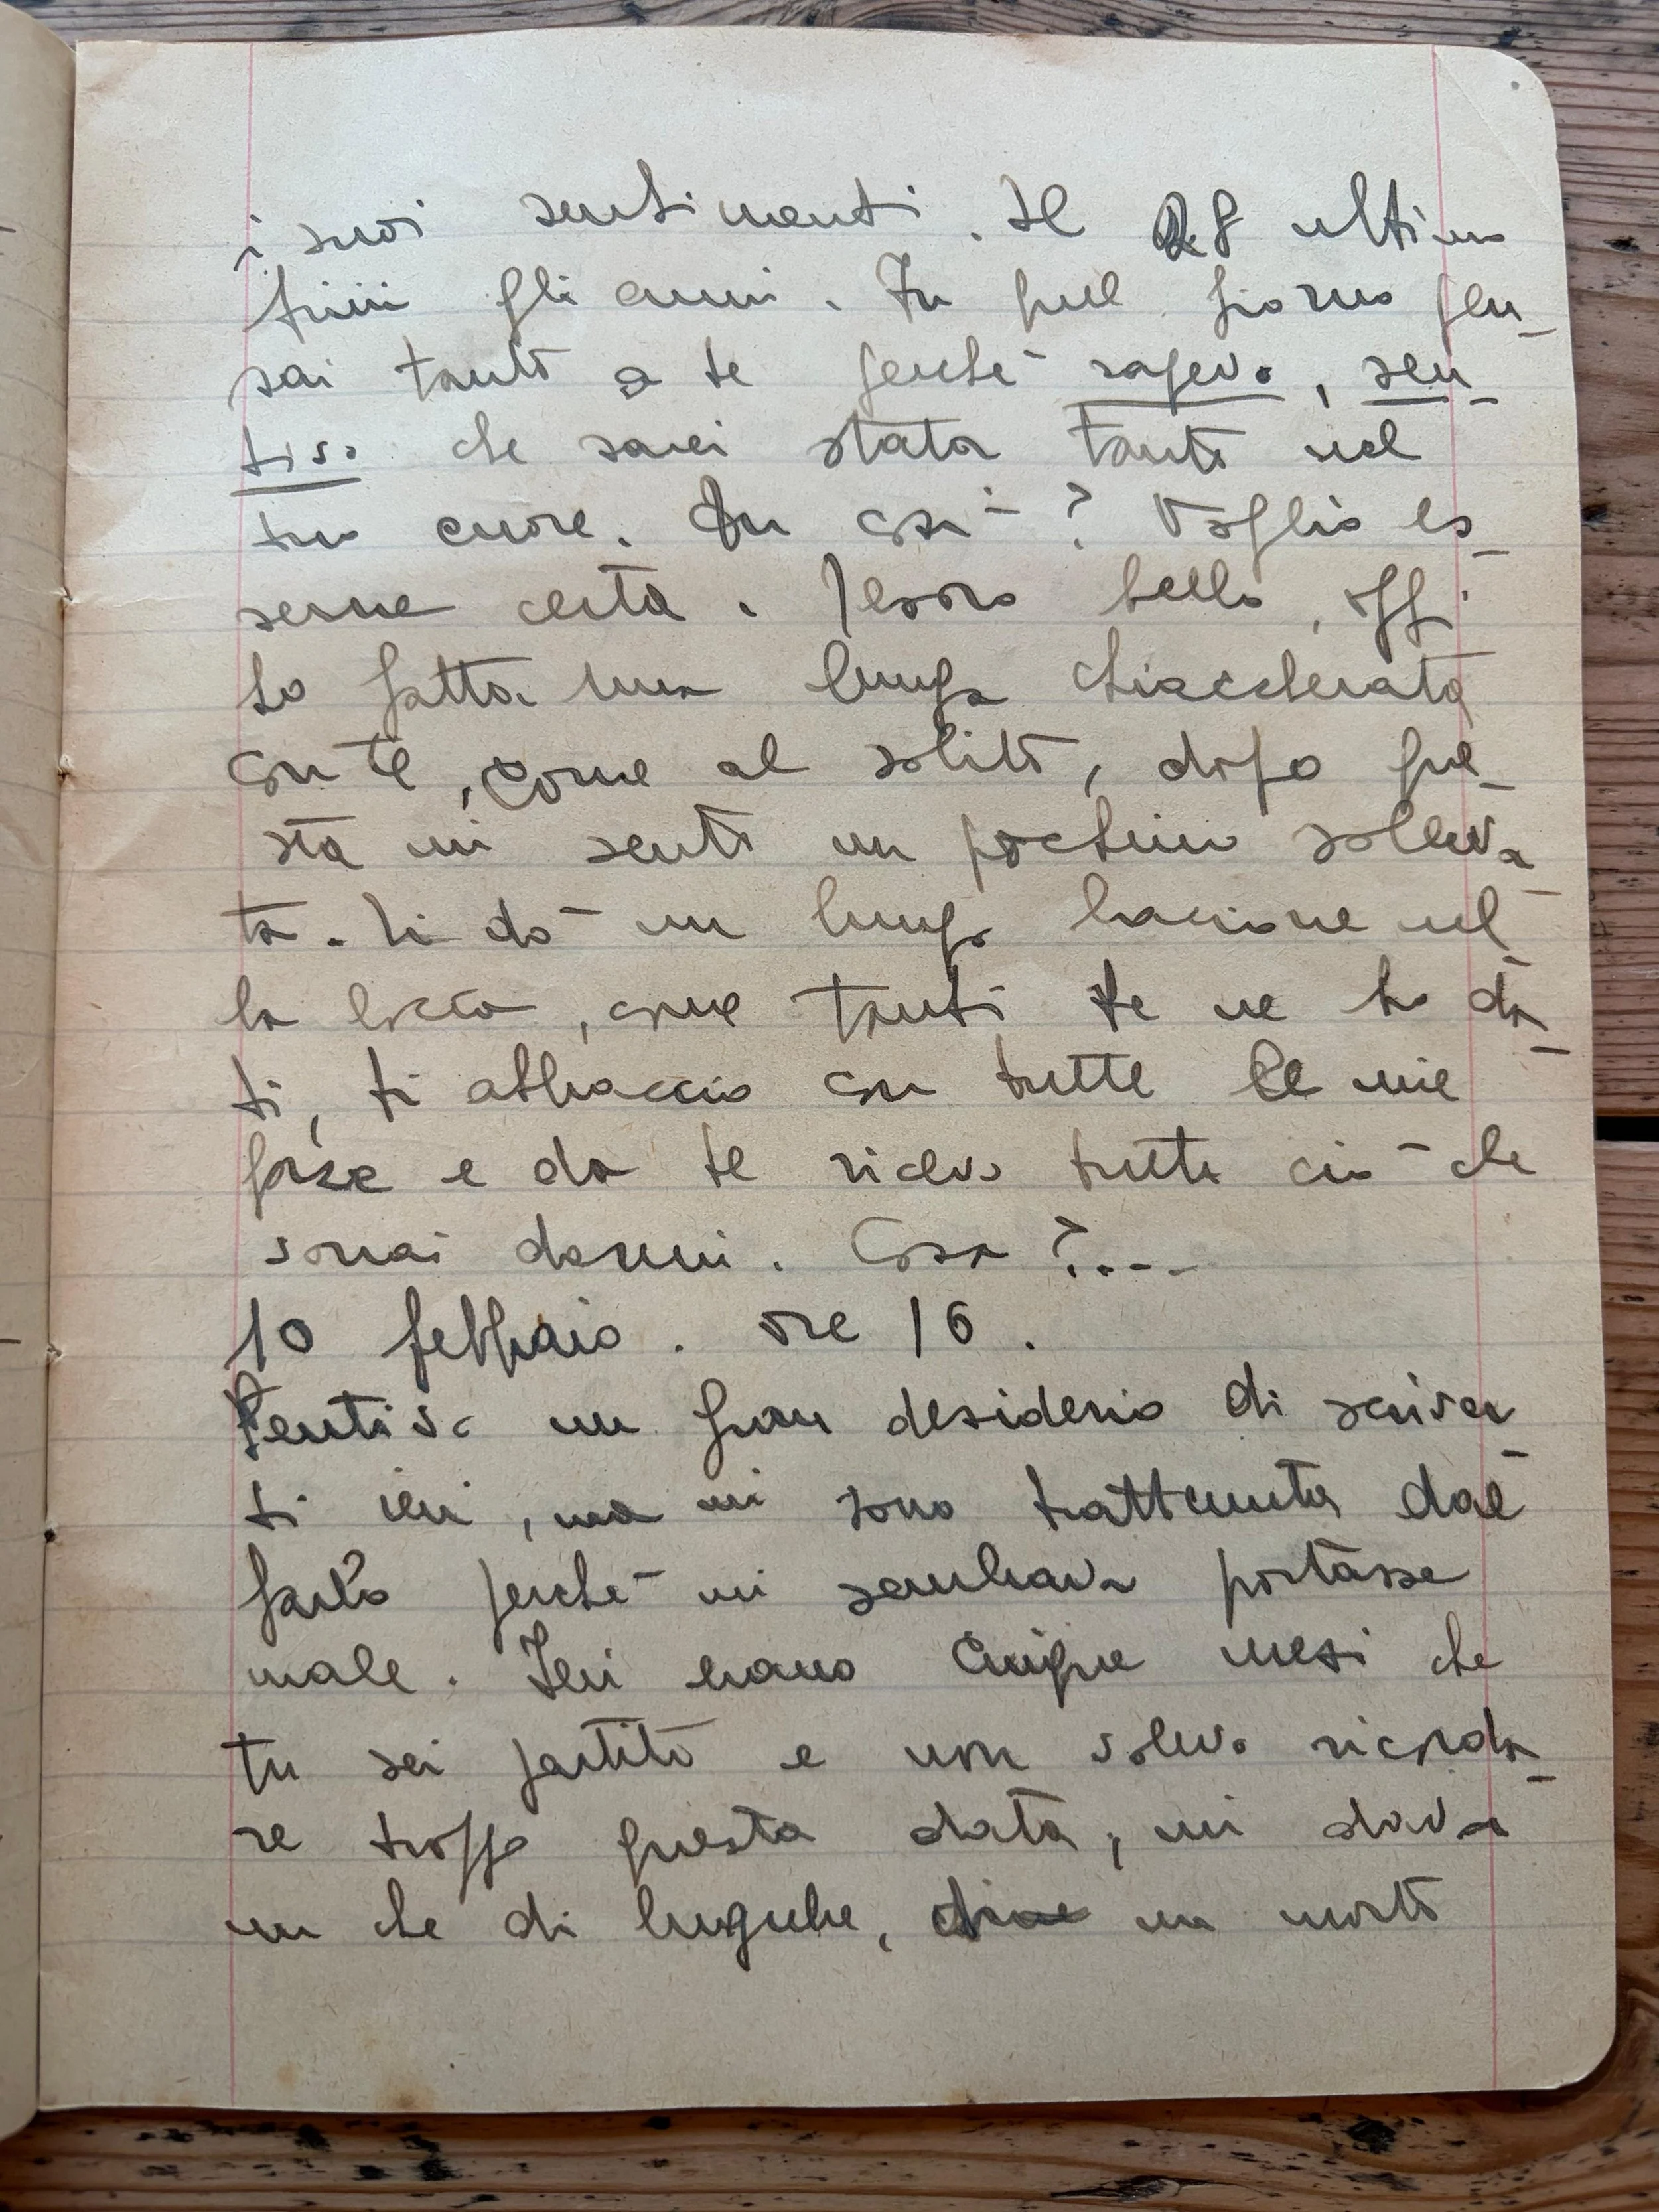 i suoi sentimenti. Il 28 ultimo
finii gli anni. In quel giorno pen-
sai tanto a te perché sapevo, sen-
tivo che sarei stata tanto nel
tuo cuore. Fu così? Voglio es-
serne certa. Tesoro bello, oggi
ho fatto una lunga chiaccherata
con te, come al solito, dopo que-
sta mi sento un pochino solleva-
ta. Ti dò un lungo bacione nel-
la bocca, come tanti te ne ho da-
ti, ti abbraccio con tutte le mie
forze e da te ricevo tutto ciò che
vorrai darmi. Cosa?....
10 febbraio. ore 16.
Sentivo un gran desiderio di scriver-
ti ieri, ma mi sono trattenuta dal
farlo perché mi sembrava portasse
male. Ieri erano cinque mesi che
tu sei partito e non volevo ricorda-
re troppo questa data, mi dava
un che di lugubre, un morto